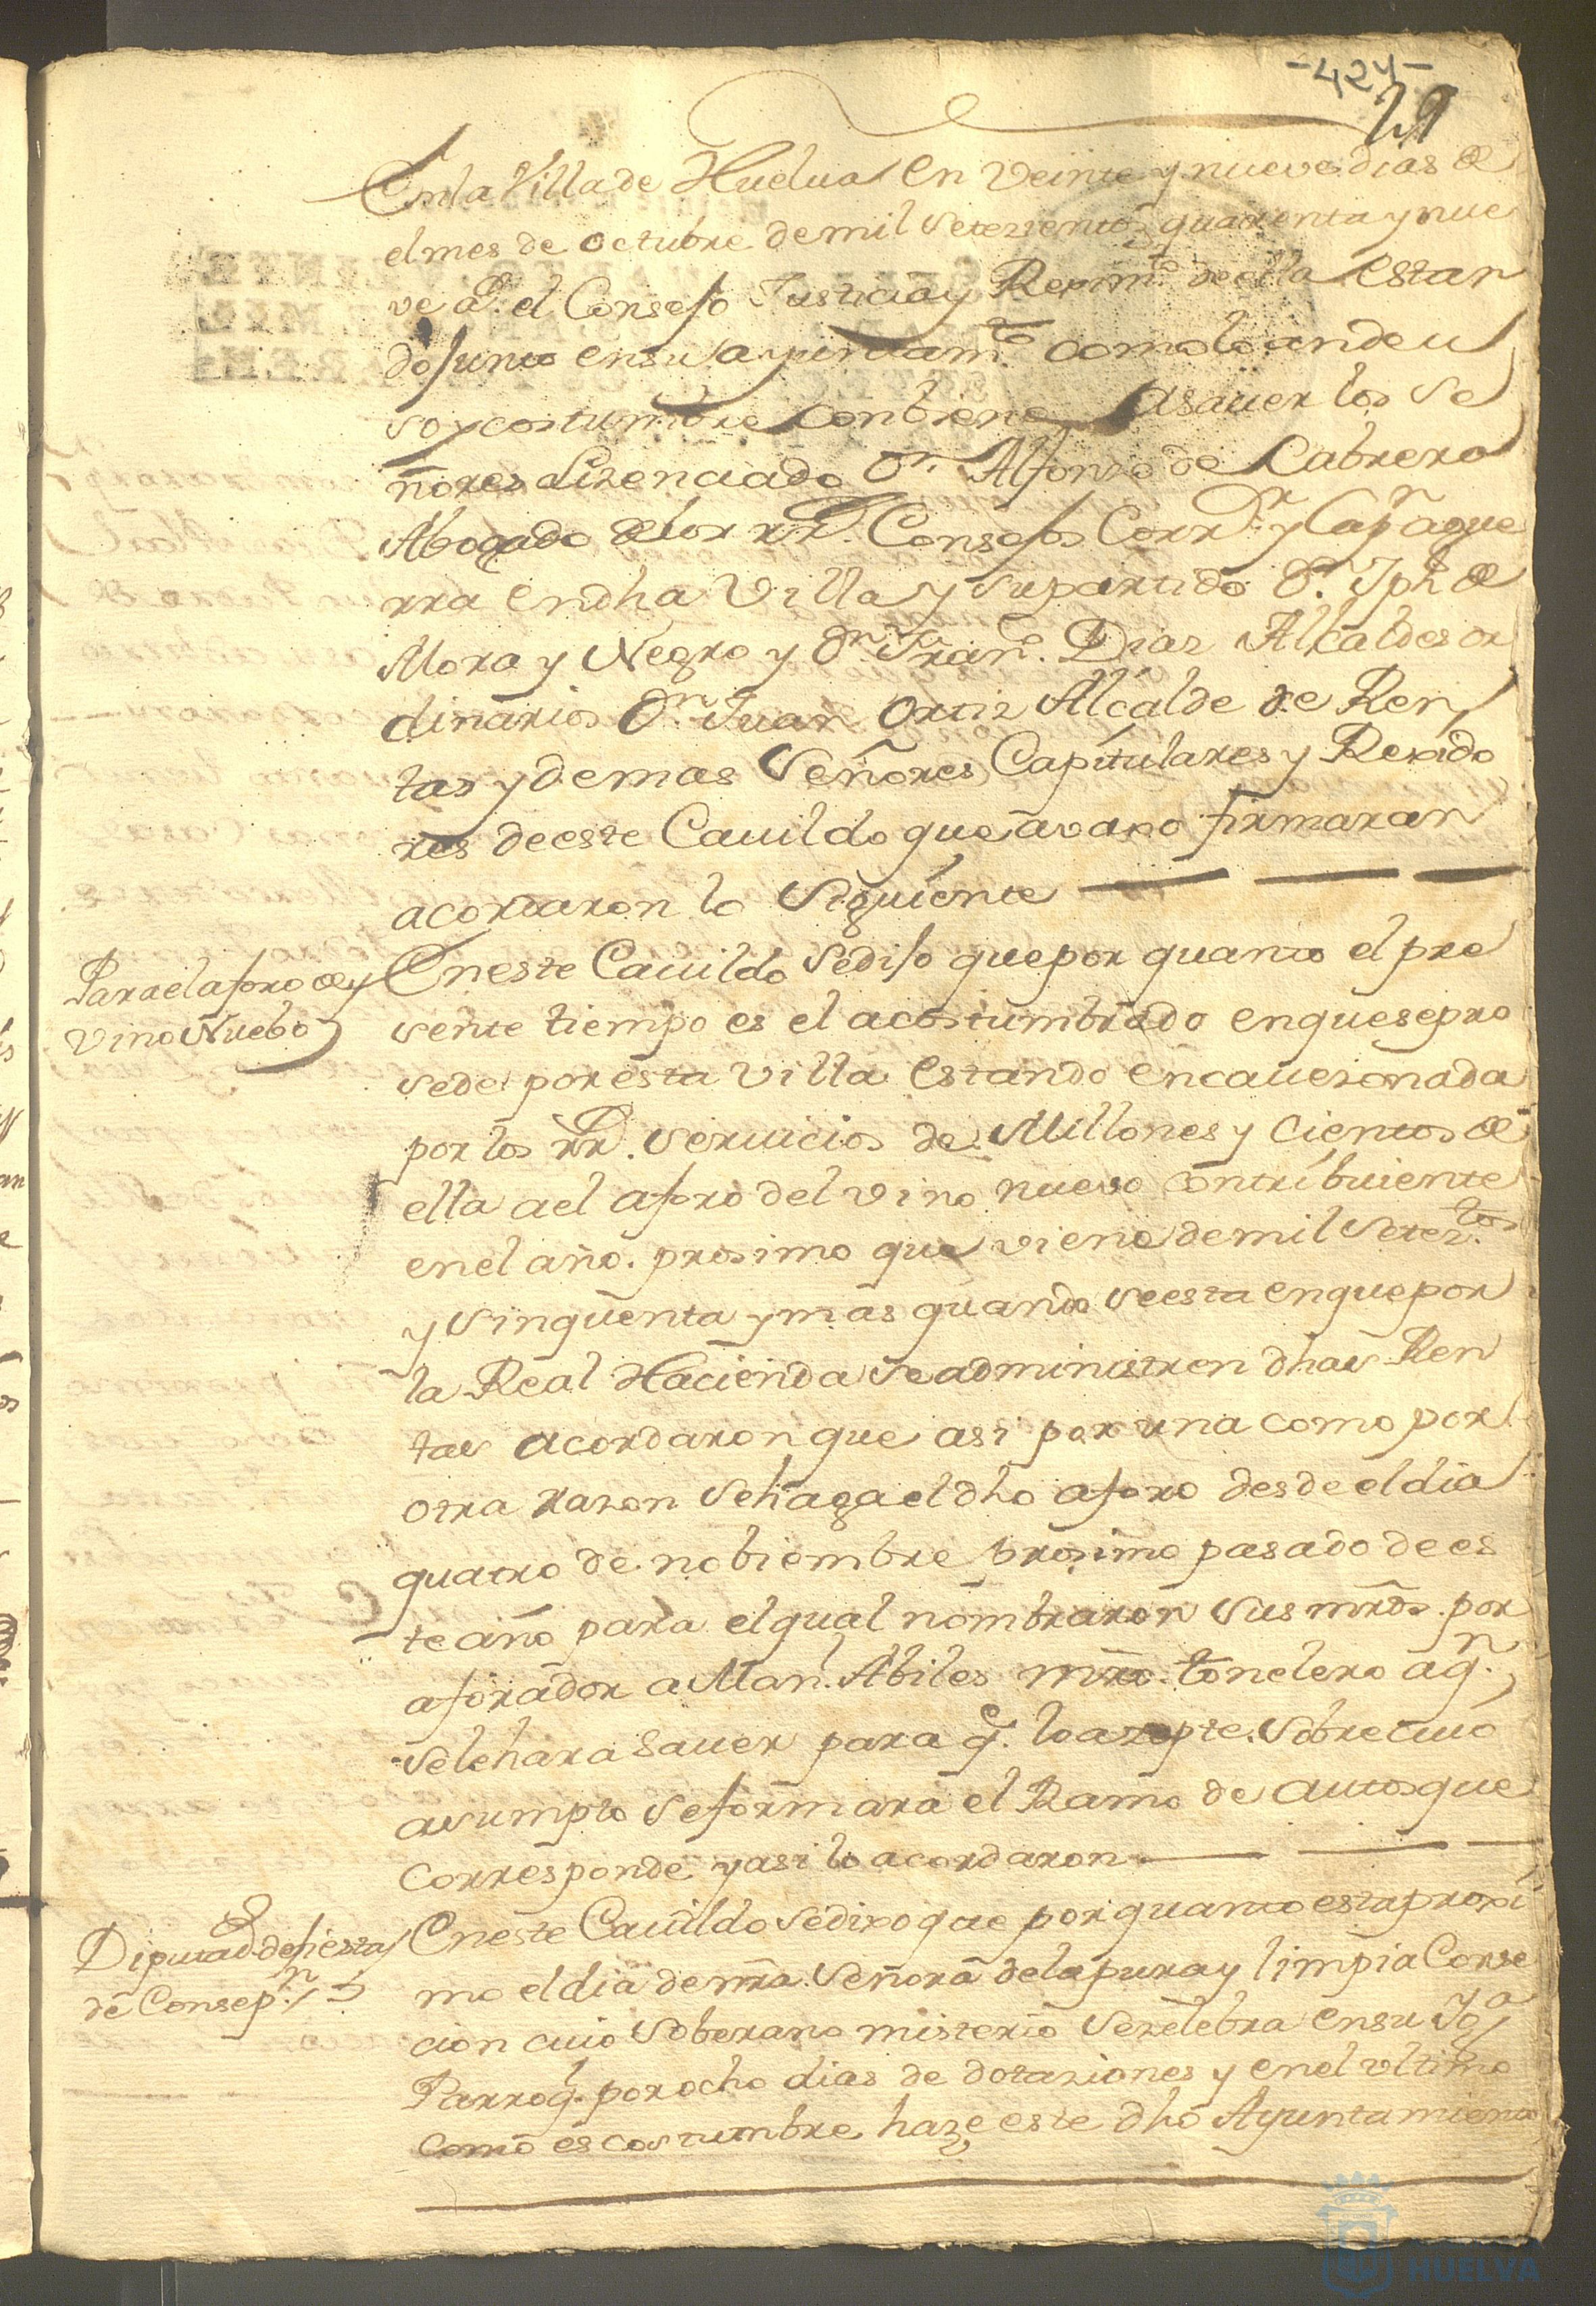 -424-
29
En la Villa de Huelua en veinte y nueve dias de
el mes de octubre de mil setezientos quarenta y nue
ve a.s el Consejo Justicia y Reximto. de ella estan
do junto en su ayuntamto. como lo an de u
so y costumbre conbiene asauer los Se
ñores Lizenciado Dn. Alfonso de Cabrera
Abogado de los rrs. Consejos Corrdr. y Capn. a gue
rra en dha Villa y su partido Dn. Jph de
Mora y Negro y Dn. Franco. Diaz Alcaldes or
dinarios Dn. Juan Ortiz Alcalde de Ren
tas y demas Señores Capitulares y Rexido
res de este Cauildo que avaxo firmaran
acordaron lo siguiente
Para el aforo de
vino Nuebo
En este Cauildo se dijo que por quanto el pre
sente tiempo es el acostumbrado en que se pro
sede por esta villa estando encauezonada
por los rrs. seruicios de Millones y cientos de
ella a el aforo del vino nuevo contribuiente
en el año proximo que viene de mil seteztos.
y sinquenta y mas quando se esta en que por
la Real Hacienda se administren dhas Ren
tas acordaron que asi por una como por
otra razon se haga el dho aforo desde el dia
quatro de nobiembre proximo pasado de es
te año para el qual nombraron sus mrds. por
aforador a Manl. Abiles mro. tonelero a qn.
se le hara sauer para qe. lo azepte. sobre cuio
asumpto se formara el Ramo de autos que
corresponde y asi lo acordaron
Diputads. de fiesta
de Consepn.
En este Cauildo se dixo que por quanto esta proxi
mo el dia de nra. Señora de la pura y limpia Conse
cion cuio soberano misterio se zelebra en su Yga.
Parroql. por ocho dias de dotaziones y en el vltimo
como es costumbre haze este dho Ayuntamiento
HUELVA